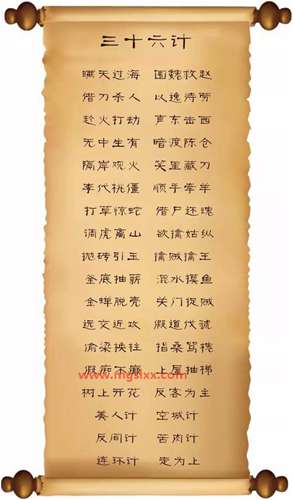 三十六计
瞒天过海 围魏救赵
借刀杀人 以逸待劳
趁火打劫 声东击西
无中生有 暗度陈仓
隔岸观火 笑里藏刀
李代桃僵 顺手牵羊
打草惊蛇 借尸还魂
调虎离山 欲擒姑纵
抛砖引玉 擒贼擒王
釜底抽薪 混水摸鱼
金蝉脱壳 关门捉贼
远交近攻 假道伐虢
偷梁换柱 指桑骂槐
假痴不癫 上屋抽梯
www.mgslxx.com
树上开花 反客为主
美人计 空城计
反间计 苦肉计
连环计 走为上